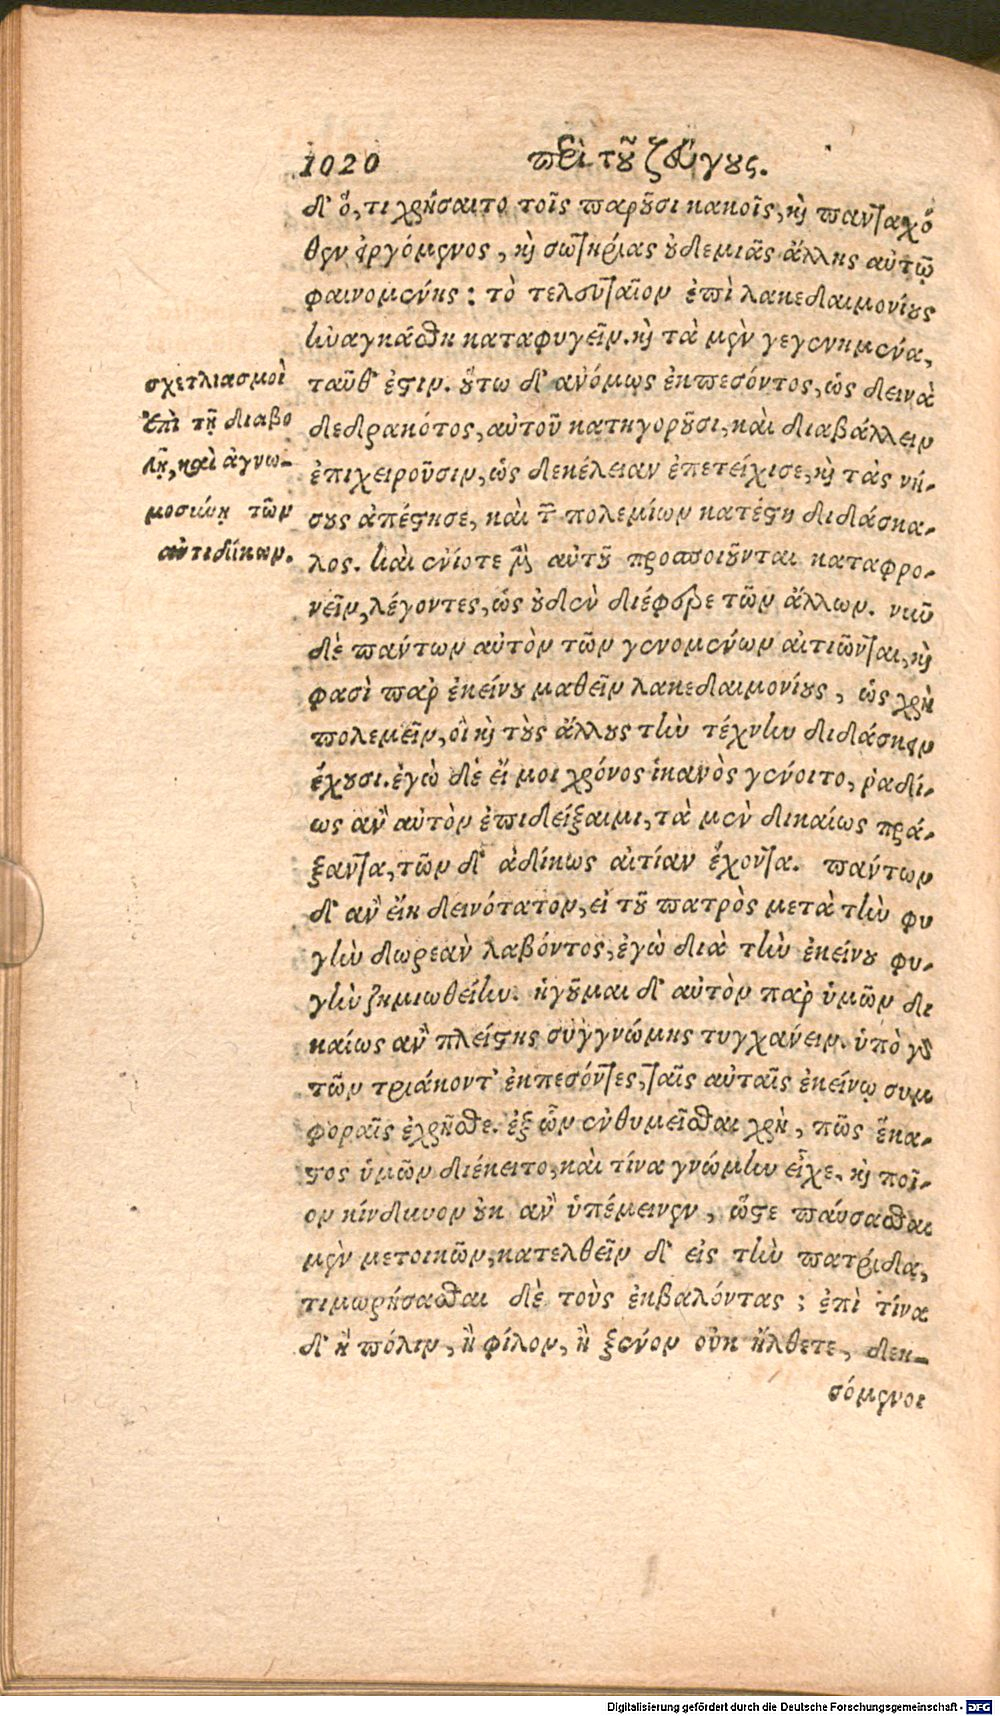 1020 περὶ τοῦ ζεύγους.
δ' ὅ, τι χρήσαιτο τοῖς παροῦσι κακοῖς, καὶ πανταχό
θεν εἰργόμενος, καὶ σωτηρίας οὐδεμιᾶς ἄλλης αὐτῷ
φαινομένης: τὸ τελευταῖον ἐπὶ λακεδαιμονίους
ἠναγκάσθη καταφυγεῖν. καὶ τὰ μὲν γεγενημένα,
ταῦθ' ἐστιν. οὕτω δ' ἀνόμως ἐκπεσόντος, ὡς δεινὰ
δεδρακότος, αὐτοῦ κατηγοροῦσι, καὶ διαβάλλειν
ἐπιχειροῦσιν, ὡς δεκέλειαν ἐπετείχισε, καὶ τὰς νή-
σους ἀπέστησε, καὶ τῶν πολεμίων κατέστη διδάσκα-
λος. καὶ ἐνίοτε μὲν αὐτοῦ προσποιοῦνται καταφρο-
νεῖν, λέγοντες, ὡς οὐδὲν διέφερε τῶν ἄλλων. νυνὶ
δὲ πάντων αὐτὸν τῶν γενομένων αἰτιῶνται, καὶ
φασὶ παρ' ἐκείνου μαθεῖν λακεδαιμονίους, ὡς χρὴ
πολεμεῖν, οἳ καὶ τοὺς ἄλλους τὴν τέχνην διδάσκειν
ἔχουσι. ἐγὼ δὲ εἴ μοι χρόνος ἱκανὸς γένοιτο, ῥαδί-
ως ἂν αὐτὸν ἐπιδείξαιμι, τὰ μὲν δικαίως πρά-
ξαντα, τῶν δ' ἀδίκως αἰτίαν ἔχοντα. πάντων
δ' ἂν εἴη δεινότατον, εἰ τοῦ πατρὸς μετὰ τὴν φυ
γὴν δωρεὰν λαβόντος, ἐγὼ διὰ τὴν ἐκείνου φυ-
γὴν ζημιωθείην. ἡγοῦμαι δ' αὐτὸν παρ' ὑμῶν δι
καίως ἂν πλείστης συγγνώμης τυγχάνειν. ὑπὸ γὰρ
τῶν τριάκοντ' ἐκπεσόντες, ταῖς αὐταῖς ἐκείνῳ συμ
φοραῖς ἐχρῆσθε. ἐξ ὧν ἐνθυμεῖσθαι χρὴ, πῶς ἕκα-
στος ὑμῶν διέκειτο, καὶ τίνα γνώμην εἶχε, καὶ ποῖ-
ον κίνδυνον οὐκ ἂν ὑπέμεινεν, ὥστε παύσασθαι
μὲν μετοικῶν, κατελθεῖν δ' εἰς τὴν πατρίδα,
τιμωρήσασθαι δὲ τοὺς ἐκβαλόντας; ἐπὶ τίνα
δ' ἢ πόλιν, ἢ φίλον, ἢ ξένον οὐκ ἤλθετε, δεη-
σόμενοι
σχετλιασμοὶ
ἐπὶ τῇ διαβο
λῇ, καὶ ἀγνω-
μοσύνῃ τῶν
ἀντιδίκων.
Digitalisierung gefördert durch die Deutsche Forschungsgemeinschaft - DFG